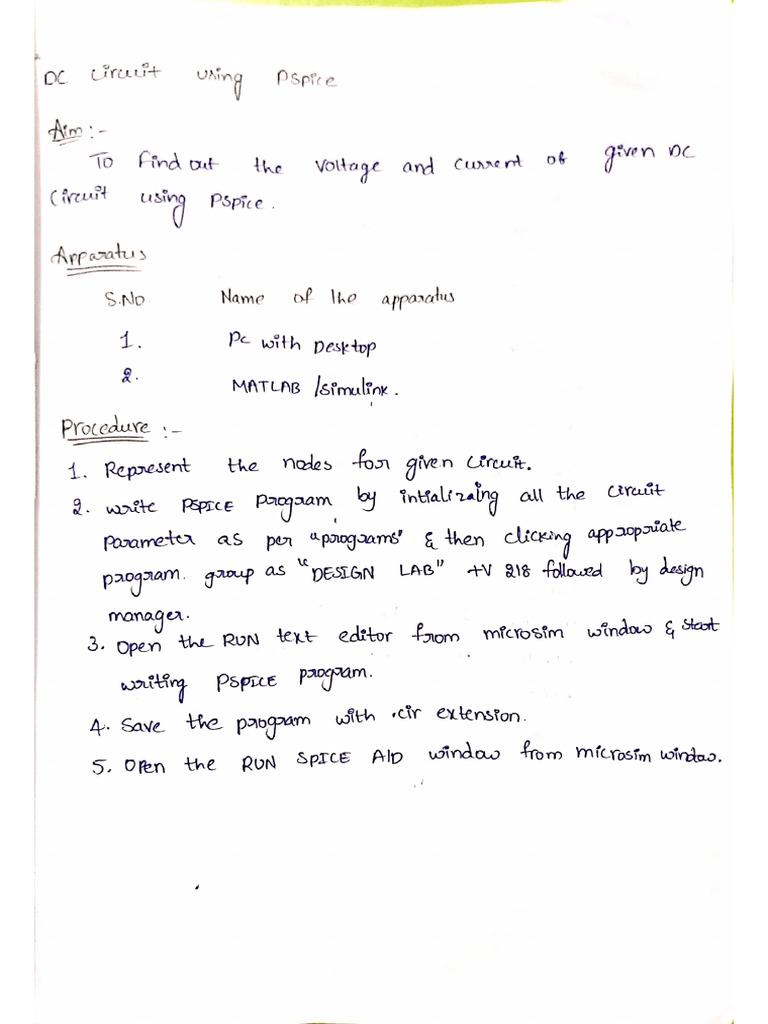 DC circuit using PSpice
Aim :-
To find out the voltage and current of given DC
circuit using PSpice.
Apparatus
S.No Name of the apparatus
1. Pc with Desktop
2. MATLAB /simulink.
Procedure :-
1. Represent the nodes for given circuit.
2. write PSPICE program by intializaing all the circuit
parameter as per "programs" & then clicking appropriate
program. group as "DESIGN LAB" +V 218 followed by design
manager.
3. Open the RUN text editor from microsim window & start
writing PSPICE program.
4. Save the program with .cir extension.
5. Open the RUN SPICE A/D window from microsim window.